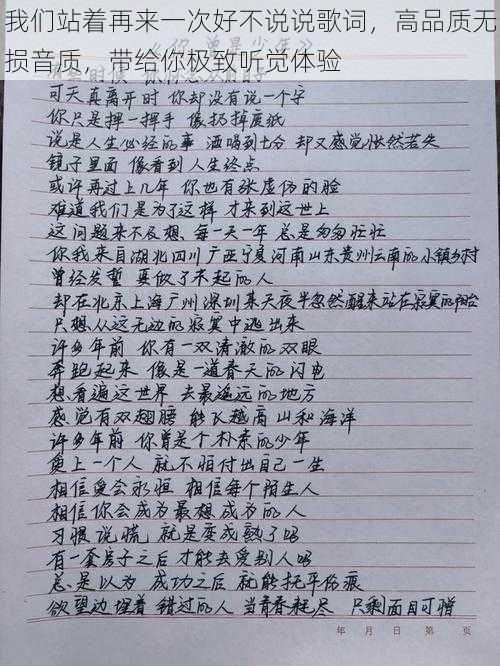 我们站着再来一次好不说说歌词，高品质无
损音质，带给你极致听觉体验
《你曾是少年》
可天真离开时 你却没有说一个字
你只是挥一挥手 像扔掉废纸
说是人生必经的事 酒喝到七分 却又感觉怅然若失
镜子里面 像看到人生终点
或许再过上几年 你也有张虚伪的脸
难道我们是为了这样 才来到这世上
这问题来不及想，每一天一年 总是匆匆忙忙
你我来自湖北四川广西宁夏河南山东贵州云南的小镇乡村
曾经发誓 要做了不起的人
却在北京上海广州深圳某天夜半忽然醒来站在寂寞的阳台
只想从这无边的寂寞中逃出来
许多年前 你有一双清澈的双眼
奔跑起来 像是一道春天的闪电
想看遍这世界 去最遥远的地方
感觉有双翅膀 能飞越高山和海洋
许多年前 你曾是个朴素的少年
爱上一个人 就不怕付出自己一生
相信爱会永恒 相信每个陌生人
相信你会成为最想成为的人
习惯说谎 就是变成熟了吗
有一套房子之后才能去爱别人吗
总是以为 成功之后 就能抚平伤痕
欲望边埋着 错过的人 当青春耗尽 只剩面目可憎
年 月 日 第 页